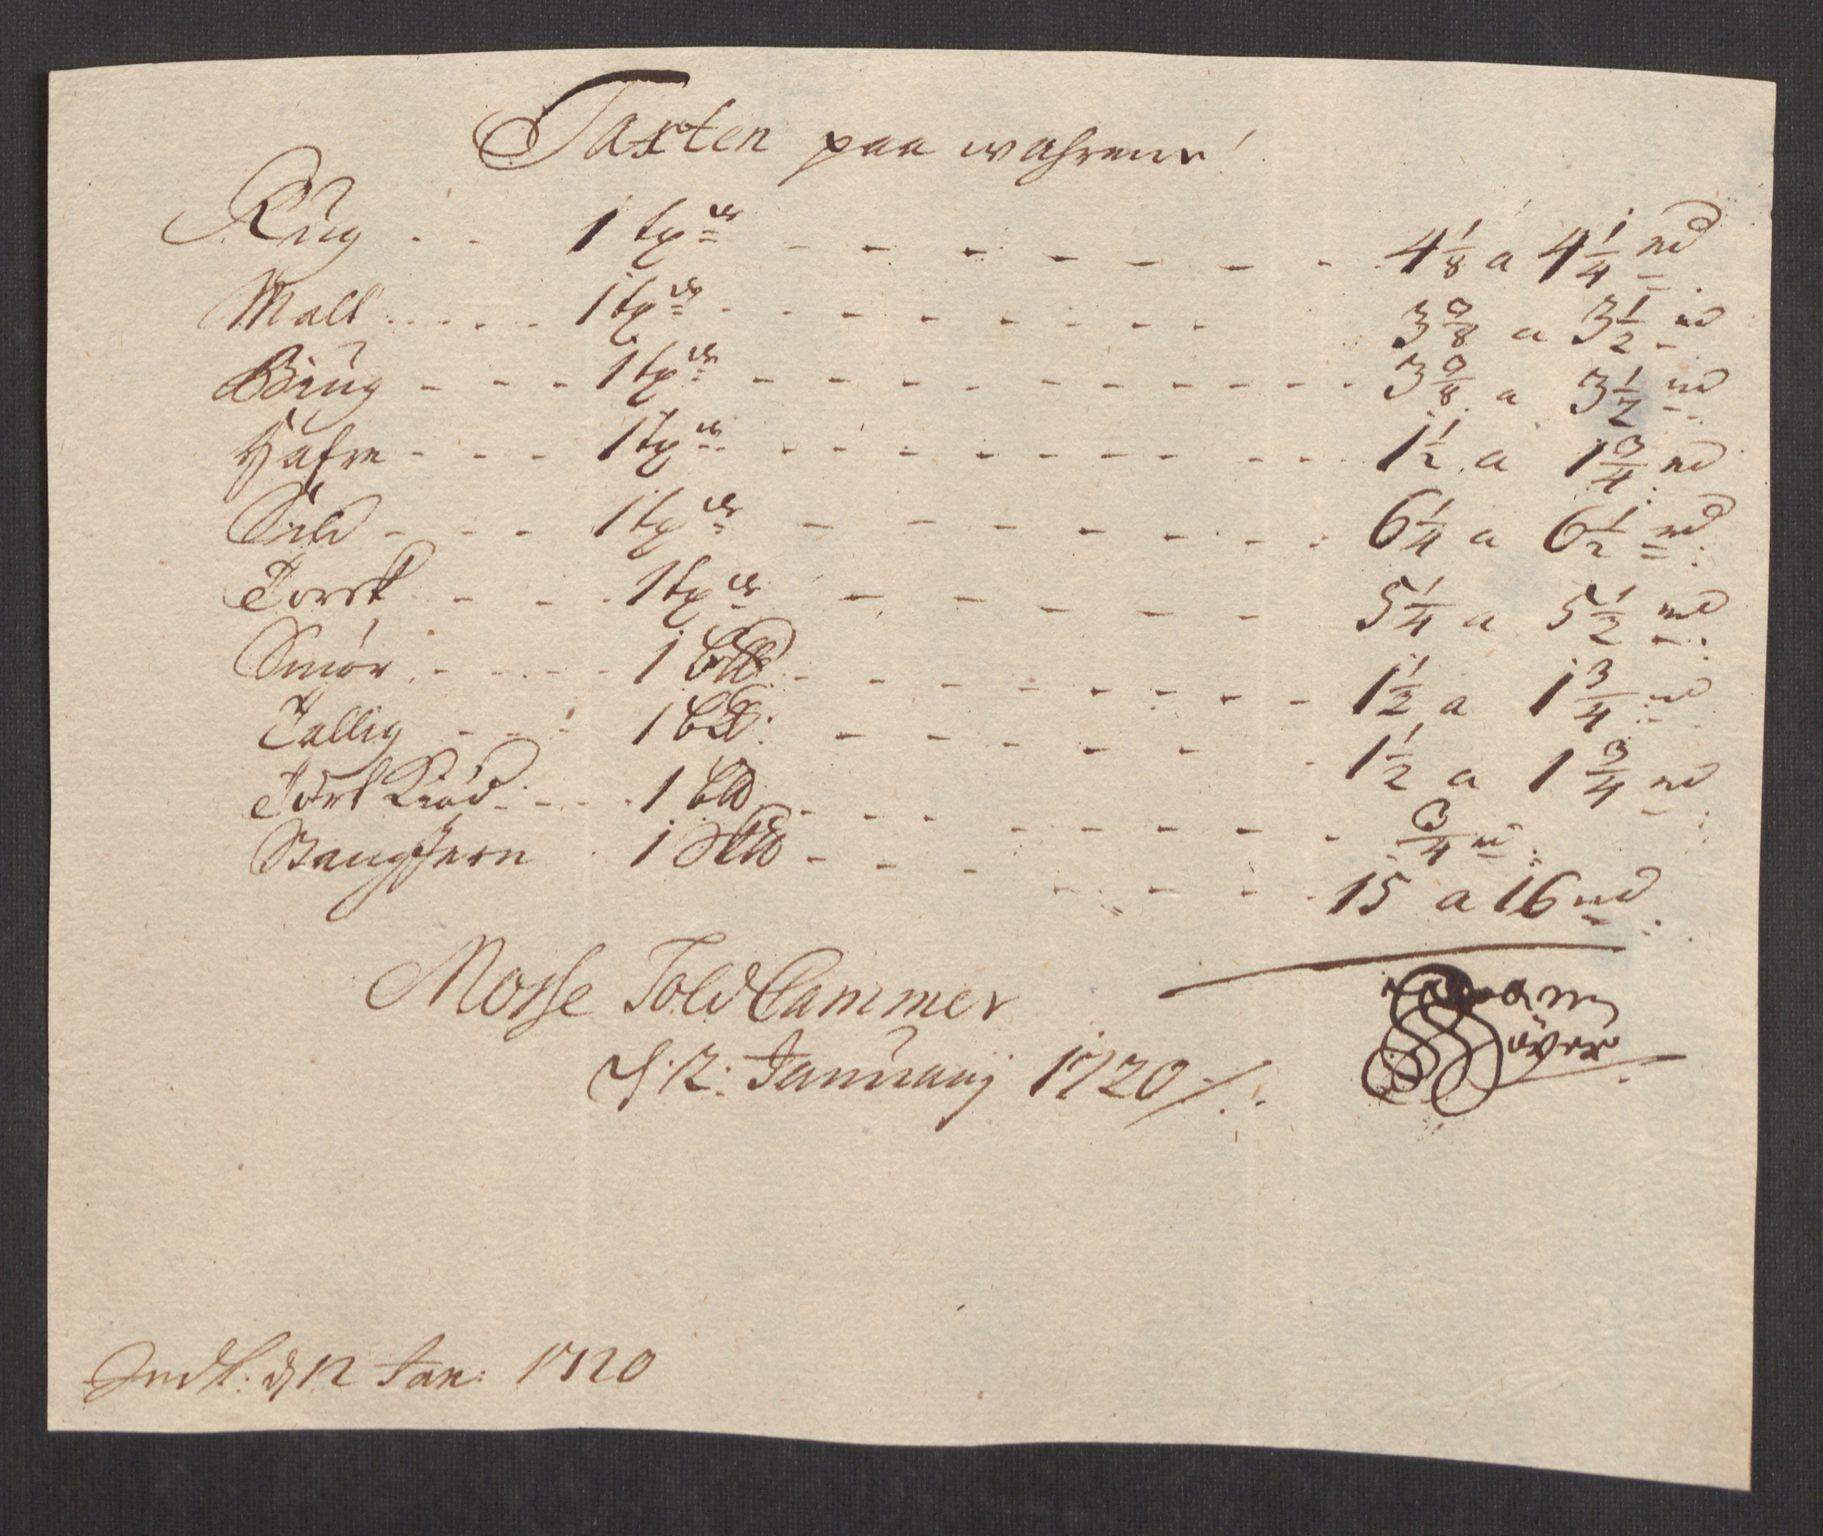 Taxten paa wahrene
Rug - - 1 tøn - - - 4 1/8 a 4 1/4 rd
Malt - - 1 tøn - - - 3 3/8 a 3 1/2 rd
Biug - - 1 tøn - - - 3 3/8 a 3 1/2 rd
Hafre - - 1 tøn - - - 1 1/2 a 1 3/4 rd
Sild - - 1 tøn - - - 6 1/4 a 6 1/2 rd
Torsk - - 1 tøn - - - 5 1/4 a 5 1/2 rd
Smör - - 1 - - - 1 1/2 a 1 3/4 rd
Tallig - - 1 - - - 1 1/2 a 1 3/4 rd
Tört Kiöd - - 1 - - - 3/4 rd
StangJern - 1 - - - 15 a 16 rd
Mosse Told Cammer
d: 12: Januarij 1720
Indl: d 12 Jan: 1720